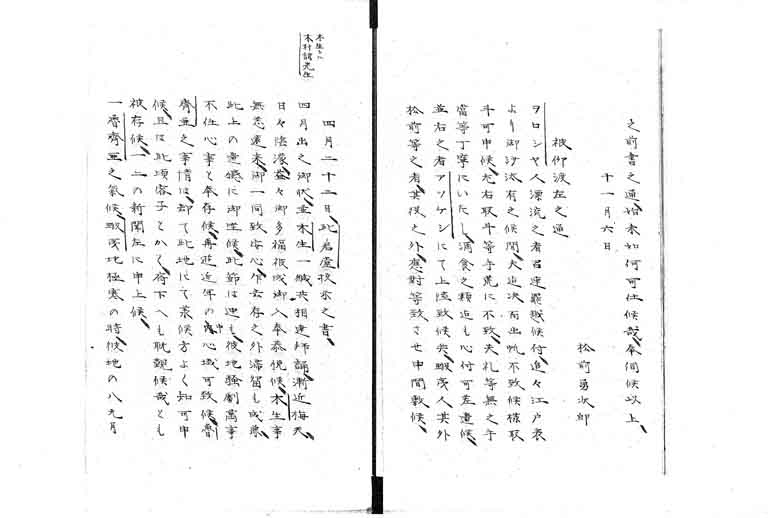 之前書之通始末如何可仕候哉奉伺候以上
十一月六日
松前勇次郎
被仰渡左之通
ヲロシヤ人漂流之者召連罷越候付追々江戸表
より御沙汰有之候間大迫決而出帆不致候様取
斗可申候尤右取斗等手荒に不致失礼等無之手
當等丁寧にいたし酒食之類迄も心付可差遣候
並右之者アツケシにて上陸致候共蝦夷人其外
松前等之者其役之外應對等致させ申間敷候
四月二十二日此君廬投示之書
木生
木村謙先生
四月出之御状並木生一緘共相達拝誦漸近梅天
日々陰濛益々御多福被成御入奉恭悦候木生事
無恙遠来御一同致安心作去存之外滞留も成兼
此上の遺憾に御坐候此節は迚も彼地騒劇萬事
不任心事と奉存候再遊近年の中心域可致候魯
齊亜之事情は却て此地にて蒸候方よく知可申
候且は此頃容子とかく荷下へも耽覯候哉とも
被存候一二の新聞左に申上候
一魯齊亜之氣候蝦夷地極寒の時彼地の八九月